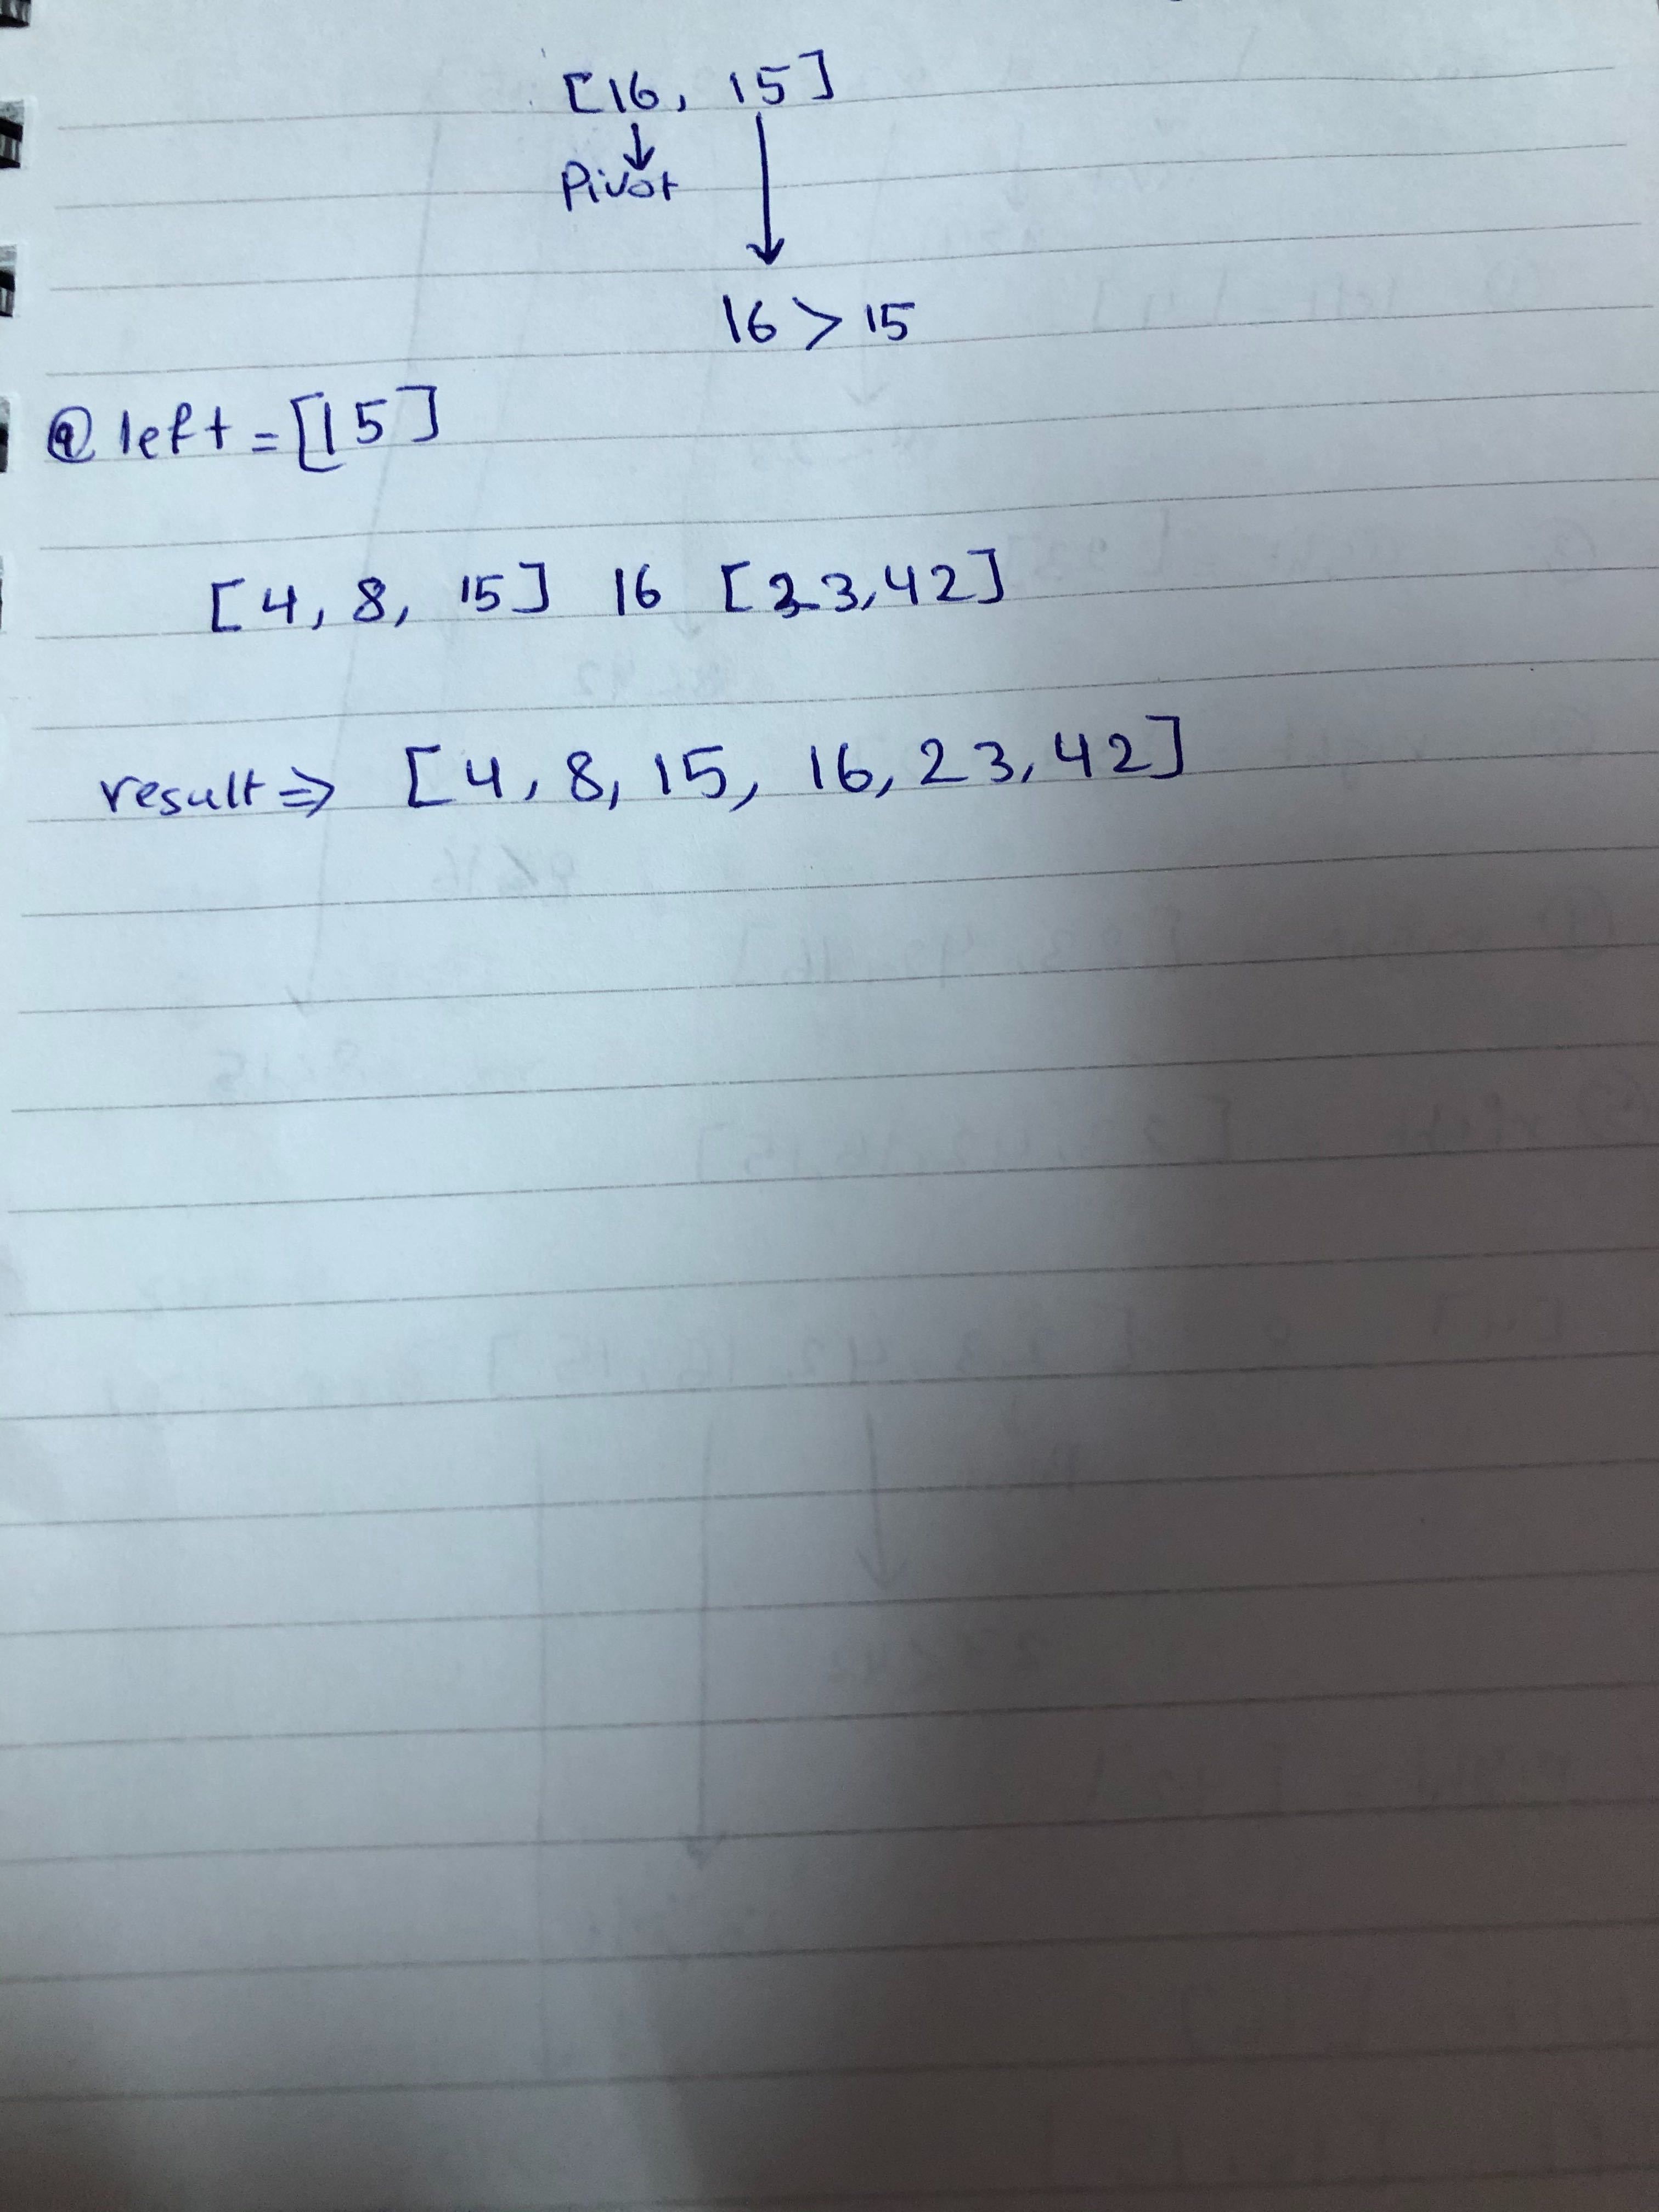 [16, 15]
Pivot
16 > 15
⑨ left = [15]
[4, 8, 15] 16 [23, 42]
result ⇒ [4, 8, 15, 16, 23, 42]